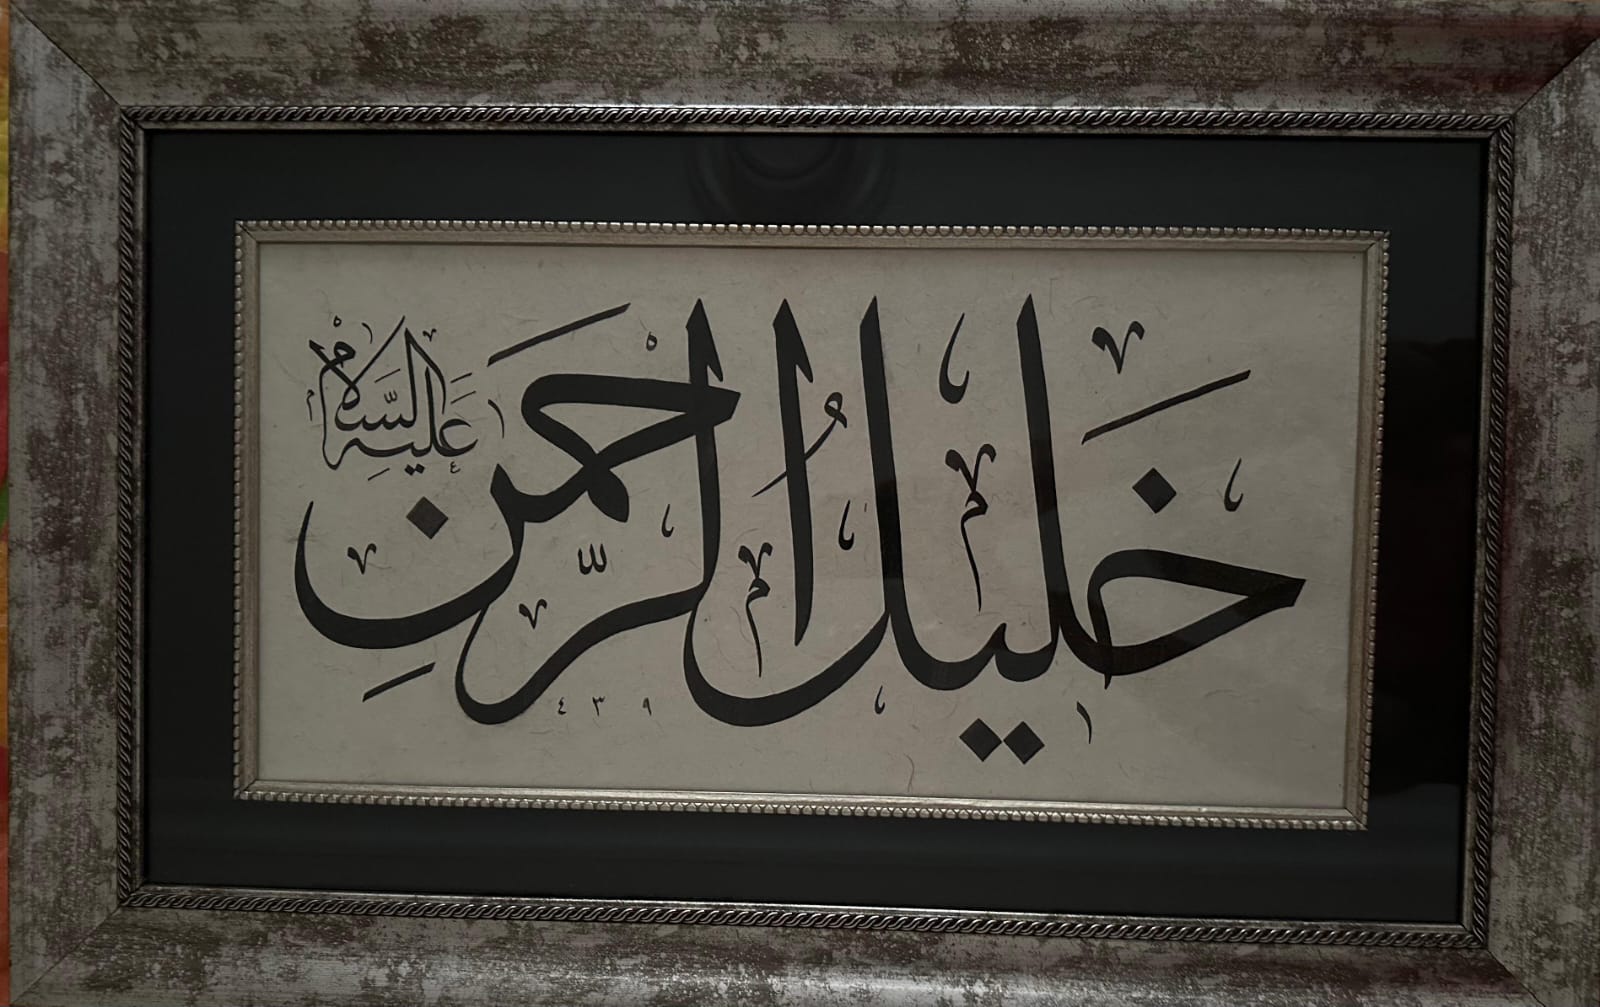 خَلِيلُ الرَّحْمٰنِ
عَلَيْهِ السَّلَامُ
١٤٣٩